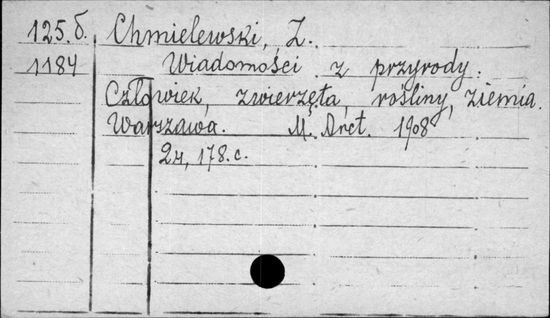 125.б. Chmielewski, Z.
1184 Wiadomości z przyrody.
Człowiek, zwierzęta, rośliny, ziemia.
Warszawa. M. Arct. 1908
2н, 178.с.